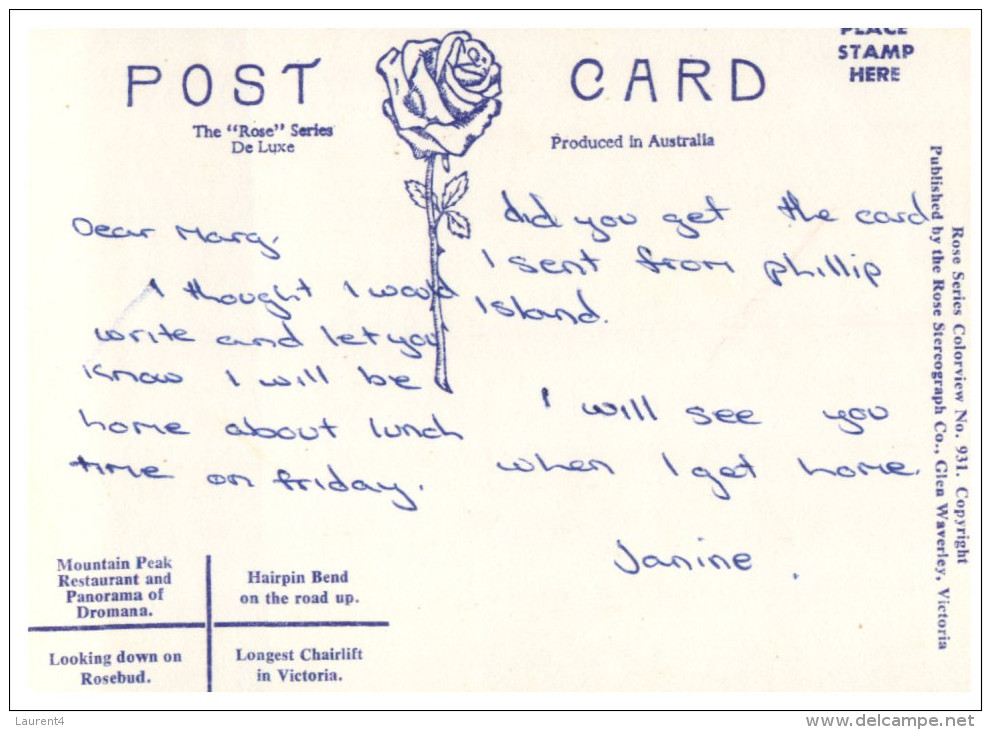 POST CARD
PLACE
STAMP
HERE
The "Rose" Series
De Luxe
Produced in Australia
Dear Marg,
I thought I would
write and let you
know I will be
home about lunch
time on friday.
did you get the card
I sent from phillip
Island.
I will see you
when I get home.
Janine.
Mountain Peak
Restaurant and
Panorama of
Dromana.
Hairpin Bend
on the road up.
Looking down on
Rosebud.
Longest Chairlift
in Victoria.
Rose Series Colorview No. 931. Copyright
Published by the Rose Stereograph Co., Glen Waverley, Victoria
Laurent4
www.delcampe.net